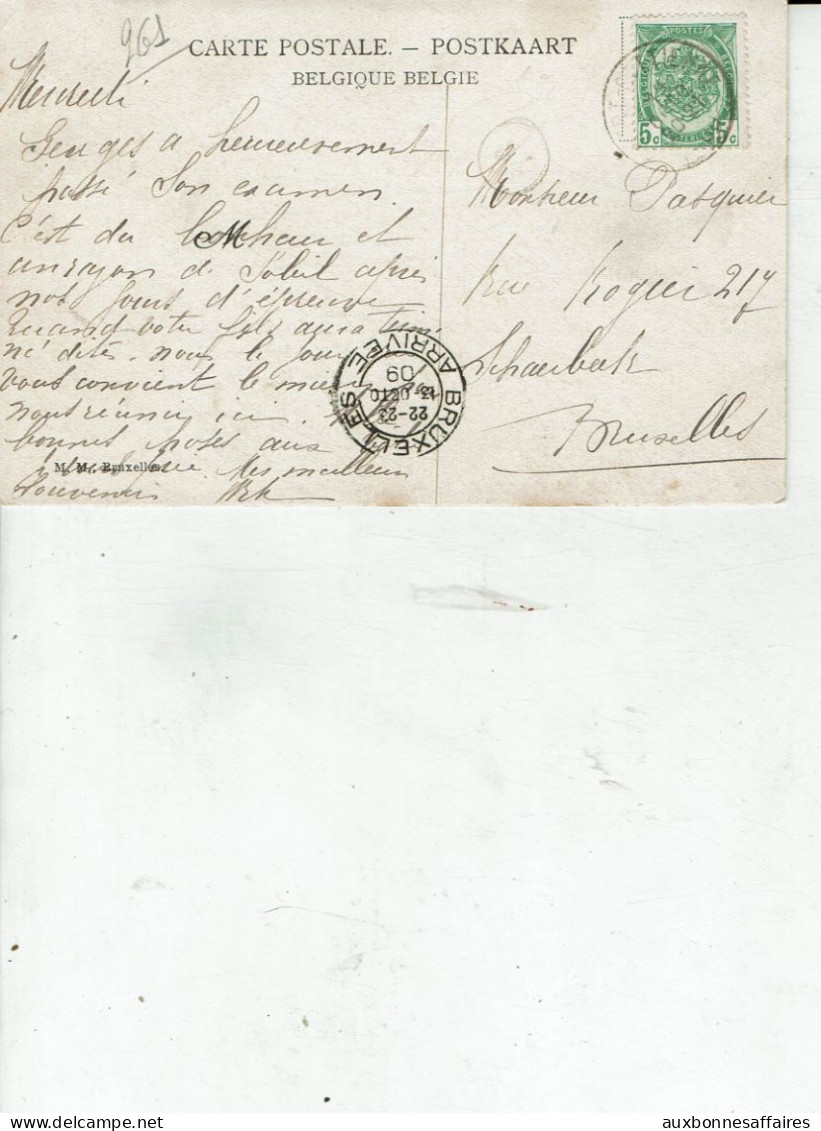 261
CARTE POSTALE. – POSTKAART
BELGIQUE BELGIE
Mercredi
Georges a heureusement
passé son examen
C'est du bonheur et
un rayon de soleil après
nos jours d'épreuve
Quand votre fils aura termi
né dites-nous le jour
vous convient le mieux
nous réunir ici
bonnes poses aux
meilleurs
souvenirs
M
M. M., Bruxelles.
POSTES
5c 5c
BRUXELLES
22-23
OCTO
09
ARRIVÉE
Monsieur Pasquier
Rue Rogier 217
Schaerbeek
Bruxelles
auxbonnesaffaires